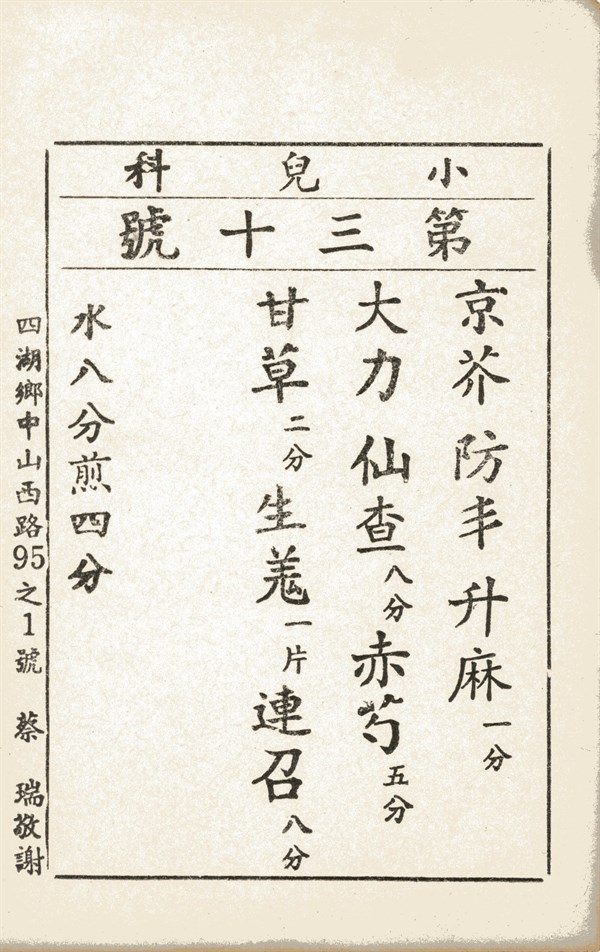 小兒科
第三十號
京芥 防丰 升麻一分
大力 仙查八分 赤芍五分
甘草二分 生羗一片 連召八分
水八分煎四分
四湖鄉中山西路95之1號 蔡瑞敬謝